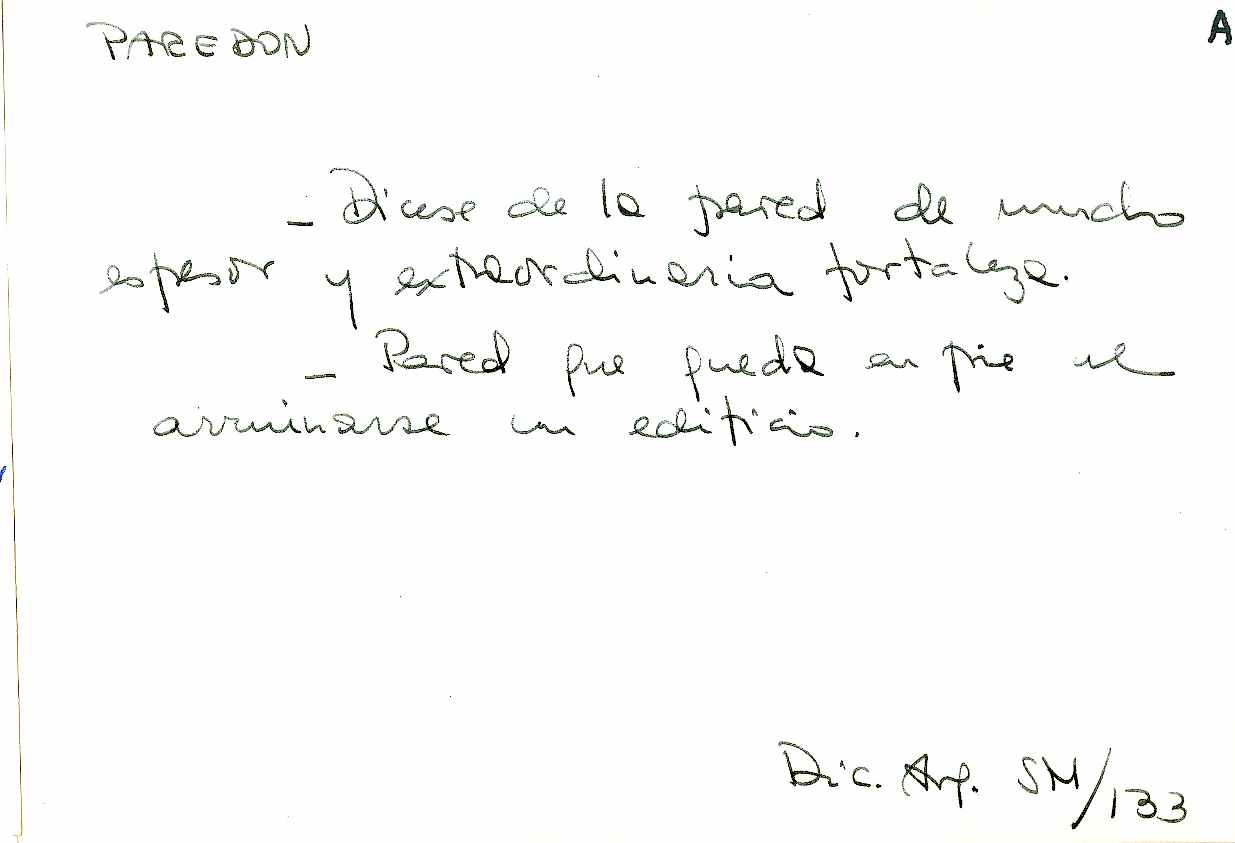 PAREDON
A
- Dicese de la pared de mucho
espesor y extraordinaria fortaleza.
- Pared que queda en pie al
arruinarse un edificio.
Dic. Arq. SM/133